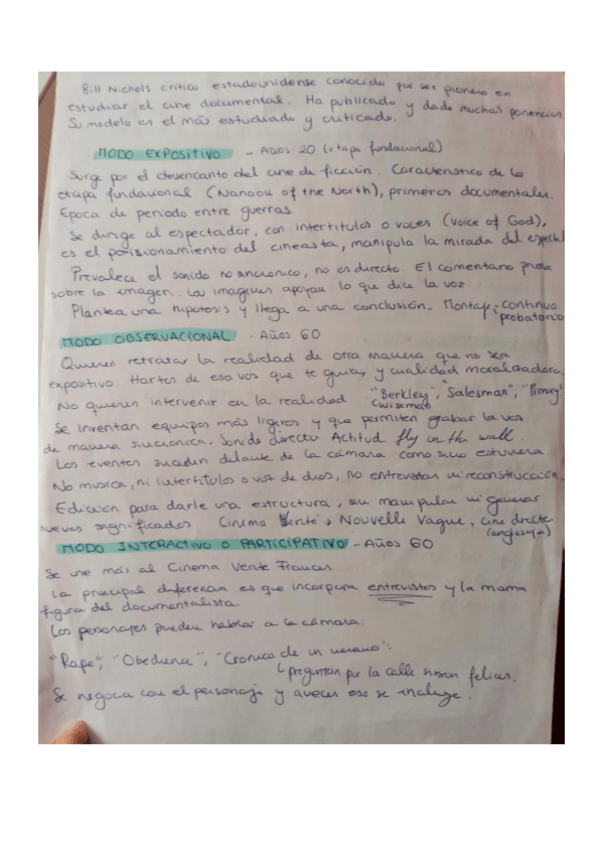 Bill Nichols crítico estadounidense conocido por ser pionero en
estudiar el cine documental. Ha publicado y dado muchas ponencias
Su modelo es el más estudiado y criticado.
MODO EXPOSITIVO - Años 20 (etapa fundacional)
Surge por el desencanto del cine de ficción. Característico de la
etapa fundacional (Nanook of the North), primeros documentales.
Época de periodo entre guerras.
Se dirige al espectador, con intertítulos o voces (Voice of God),
es el posicionamiento del cineasta, manipula la mirada del
Prevalece el sonido no sincrónico, no es directo. El comentario
sobre la imagen. Las imagenes apoyan lo que dice la voz.
Plantea una hipotesis y llega a una conclusión. Montaje: continuo
probatorio
MODO OBSERVACIONAL - Años 60
Quieren retratar la realidad de otra manera que no sea
expositivo. Hartos de esa voz que te guía y cualidad moralizadora.
No quieren intervenir en la realidad. "Berkley", "Salesman", "Primary"
(Wiseman)
Se inventan equipos más ligeros y que permiten grabar la voz
de manera sincronica. Sonido directo Actitud fly on the wall.
Los eventos suceden delante de la cámara como si no estuviera.
No musica, ni intertítulos o voz de dios, no entrevistas ni reconstrucción.
Edición para darle una estructura, sin manipular ni generar
nuevos significados Cinema Verité → Nouvelle Vague, cine directo
(anglosaja)
MODO INTERACTIVO O PARTICIPATIVO - Años 60
Se une más al Cinema Verite Frances.
La principal diferencia es que incorpora entrevistas y la misma
figura del documentalista.
Los personajes pueden hablar a la cámara.
"Rape", "Obedience", "Cronica de un verano":
preguntan por la calle si son felices.
Se negocia con el personaje y aveces eso se incluye.